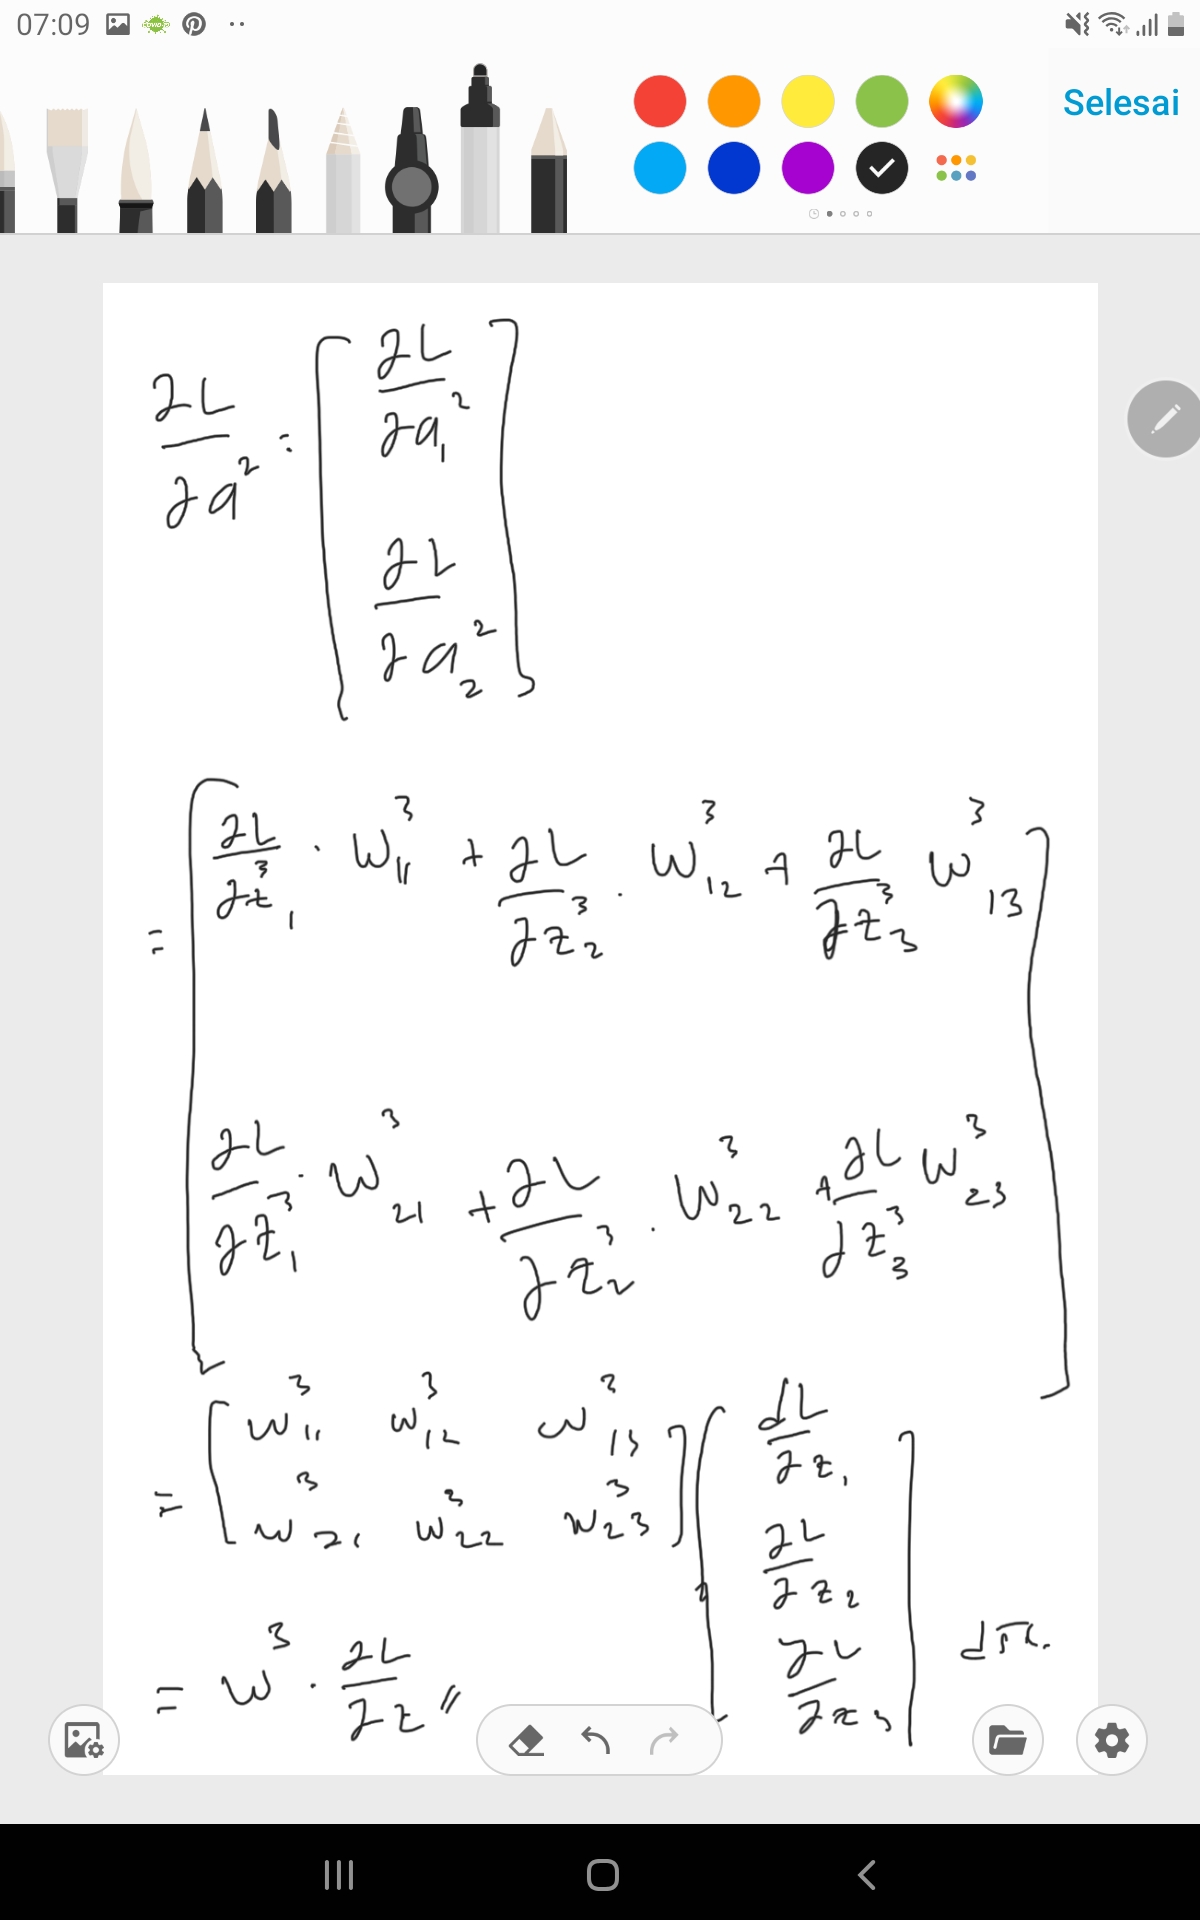 07:09
Selesai
∂L/∂a² = [ ∂L/∂a₁² ; ∂L/∂a₂² ]
= [ ∂L/∂z₁³ · W₁₁³ + ∂L/∂z₂³ · W₁₂³ + ∂L/∂z₃³ W₁₃³ ;
∂L/∂z₁³ · W₂₁³ + ∂L/∂z₂³ · W₂₂³ + ∂L/∂z₃³ W₂₃³ ]
= [ W₁₁³ W₁₂³ W₁₃³ ; W₂₁³ W₂₂³ W₂₃³ ] [ dL/∂z₁ ; ∂L/∂z₂ ; ∂L/∂z₃ ]
= W³ · ∂L/∂z //